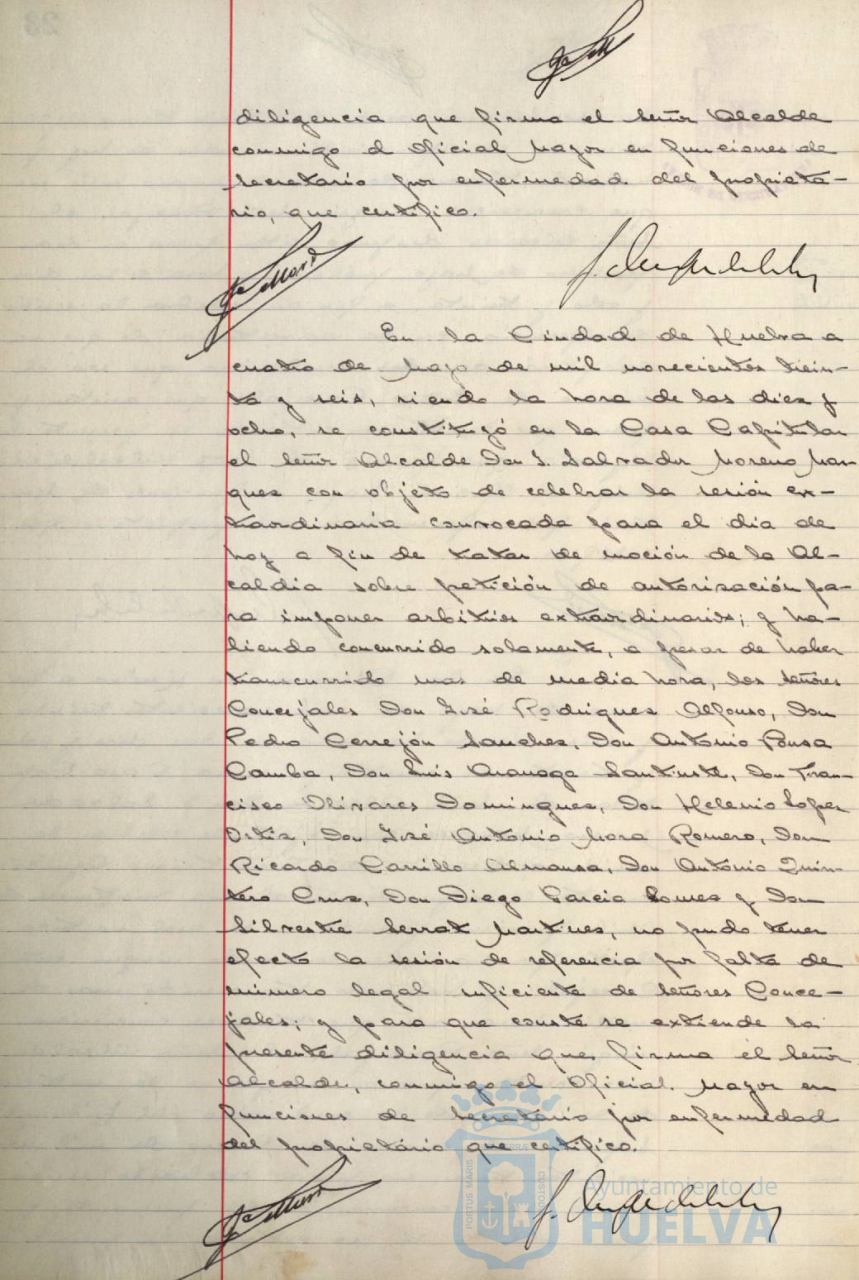 diligencia que firma el señor Alcalde
conmigo el Oficial Mayor en funciones de
secretario por enfermedad del propieta-
rio, que certifico.
En la Ciudad de Huelva a
cuatro de Mayo de mil novecientos trein-
ta y seis, siendo la hora de las diez y
ocho, se constituyó en la Casa Capitular
el señor Alcalde Don J. Salvador Moreno Mar-
quez con objeto de celebrar la sesión ex-
traordinaria convocada para el dia de
hoy a fin de tratar de moción de la Al-
caldia sobre petición de autorización pa-
ra imponer arbitrios extraordinarios; y ha-
biendo concurrido solamente, a pesar de haber
transcurrido mas de media hora, los señores
Concejales Don José Rodriguez Alfonso, Don
Pedro Cerrejón Sanchez, Don Antonio Pousa
Camba, Don Luis Aranaga Santiuste, Don Fran-
cisco Olivares Dominguez, Don Helenio Lopez
Ortiz, Don José Antonio Mora Romero, Don
Ricardo Carrillo Almansa, Don Antonio Quin-
tero Cruz, Don Diego Garcia Gomez y Don
Silvestre Serrat Martinez, no pudo tener
efecto la sesión de referencia por falta de
número legal suficiente de señores Conce-
jales; y para que conste se extiende la
presente diligencia que firma el señor
Alcalde, conmigo el Oficial Mayor en
funciones de secretario por enfermedad
del propietário que certifico.
PORTUS MARIS
CUSTODIA
Ayuntamiento de
HUELVA